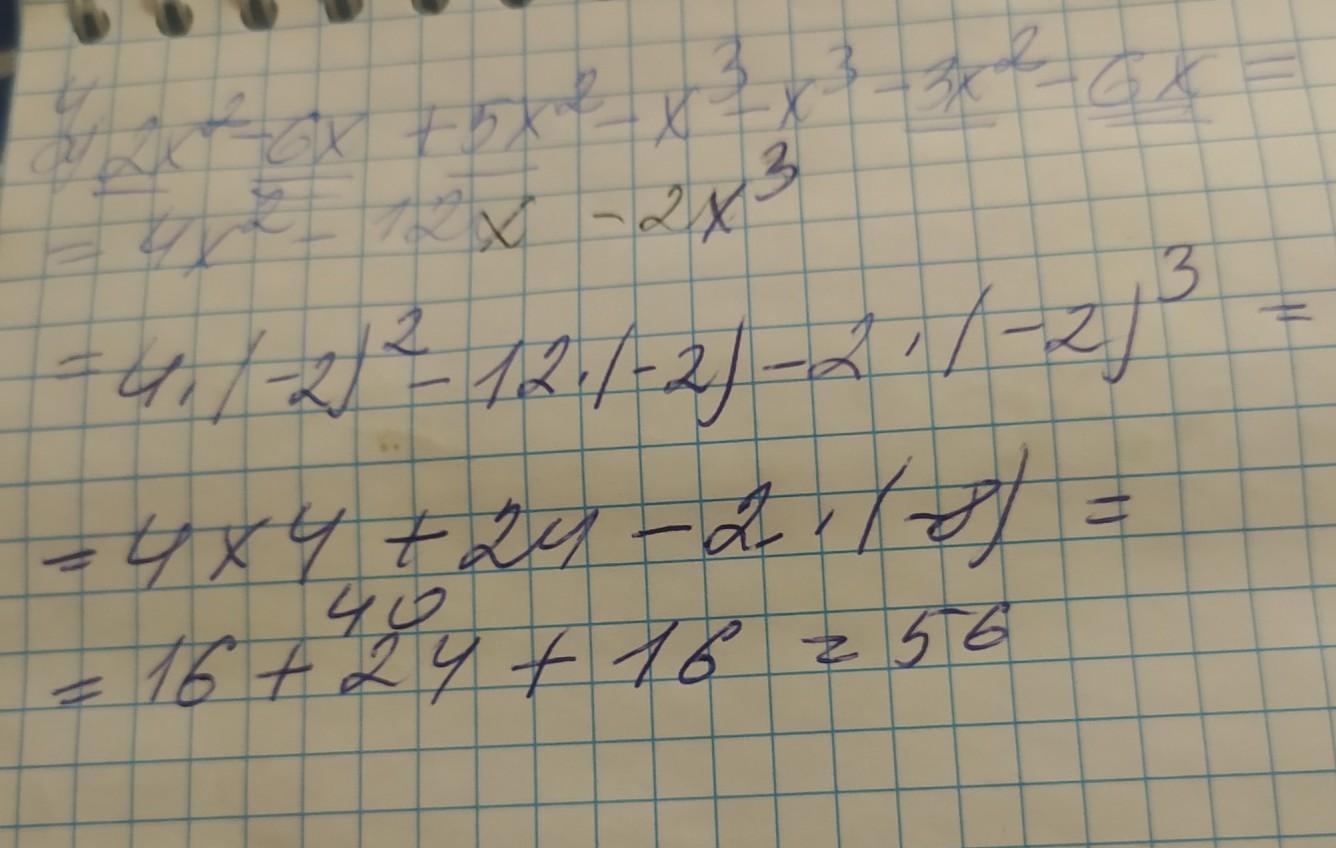 4
2x² - 6x + 5x² - x³ - x³ - 3x² - 6x =
= 4x² - 12x - 2x³
= 4 · (-2)² - 12 · (-2) - 2 · (-2)³ =
= 4 x 4 + 24 - 2 · (-8) =
40
= 16 + 24 + 16 = 56